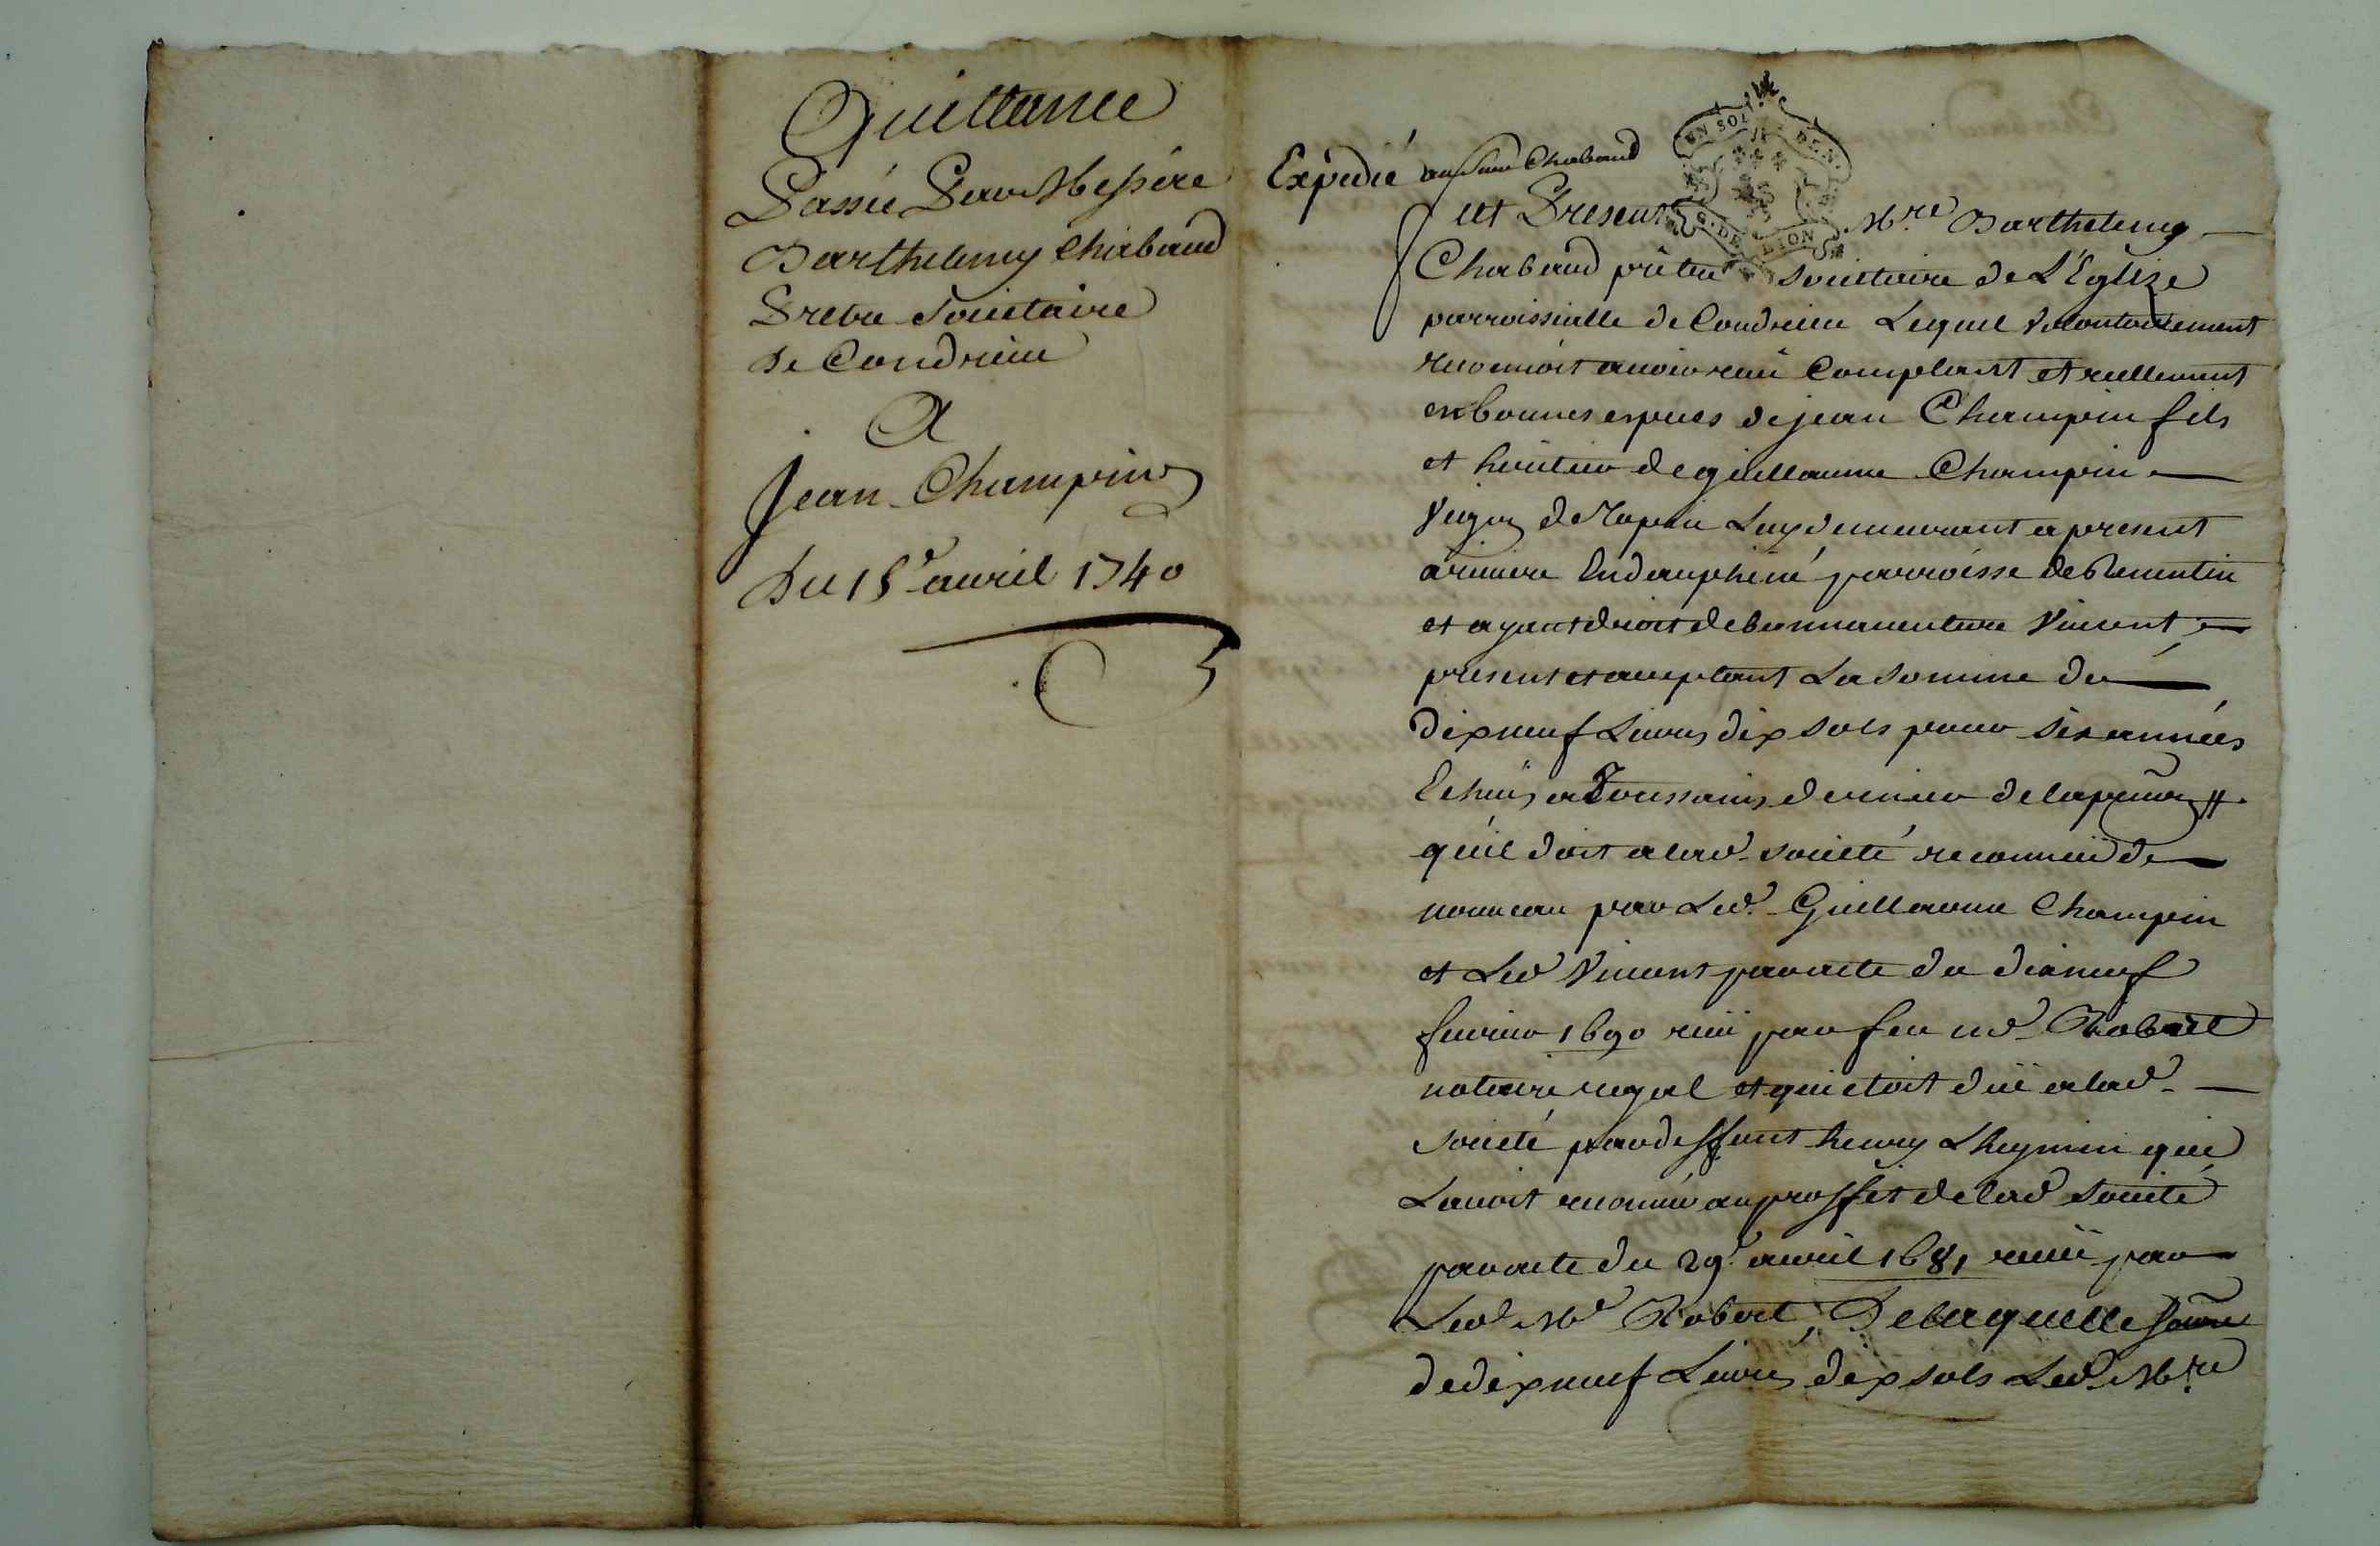 Quittance
Passée Par Messire
Barthelemy Chabaud
Prebre Societaire
de Condrieu
A
Jean Champin
Du 15e avril 1740
Expédié au sieur Chabaud
UN SOL DEN.
G. DE LION
fut Present Mre Barthelemy
Chabaud prêtre societaire de L'Eglize
parroissialle de Condrieu Lequel volontairement
reconnoit avoir reçu Comptant et reellement
en bonnes especes de jean Champin fils
et heritier de guillaume Champin
Vigon de Tupin Luy demeurant a present
a riviere En dauphiné parroisse de
et ayant droit de bonnaventure Vincent
present et acceptant La somme de
dix neuf Livres dix sols pour six années
Echeües a Toussains dernier de la
qu'il doit a lad. societé reconnuë de
nouveau par Led. Guillaume Champin
et Led Vincent par acte du dix neuf
fevrier 1690 reçu par feu Me Robert
notaire royal et qui etoit düe a lad.
societé par deffunt henry Lheymin qui
L'avoit reconnüe au proffit de lad societé
par acte du 29e avril 1681 reçu par
Led. Me Robert, De laquelle somme
de dix neuf Livres dix sols Led. Mre